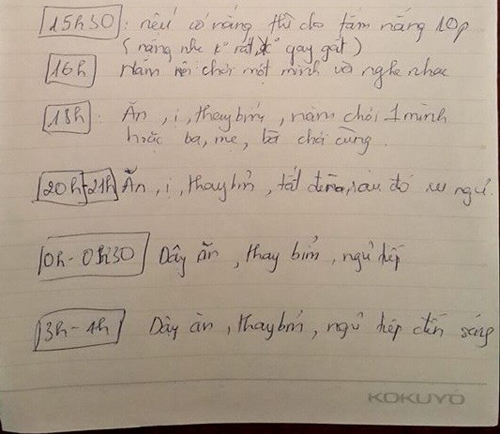 15h30 : nếu có nắng thì cho tắm nắng 10p
( nắng nhẹ k° rất k° gay gắt )
16h Nằm nôi chơi một mình và nghe nhạc
18h : Ăn , ị , thay bỉm , nằm chơi 1 mình
hoặc ba, mẹ, bà chơi cùng .
20h-21h Ăn , ị , thay bỉm , tắt đèn, sau đó ngủ
0h - 0h30 Dậy ăn , thay bỉm , ngủ tiếp
3h - 4h Dậy ăn , thay bỉm , ngủ tiếp đến sáng
KOKUYO